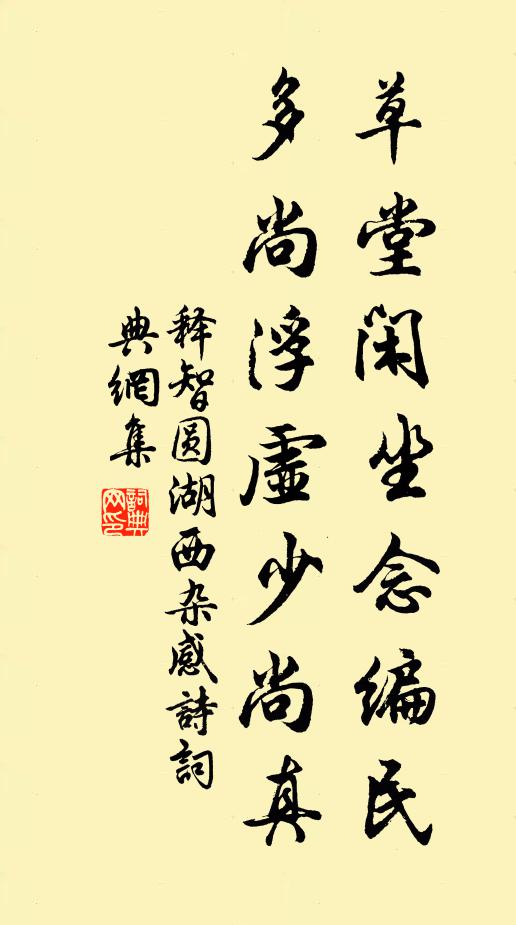 草堂闲坐念编民
多尚浮虚少尚真
释智圆湖西杂感詩詞
典網集
詞典网印